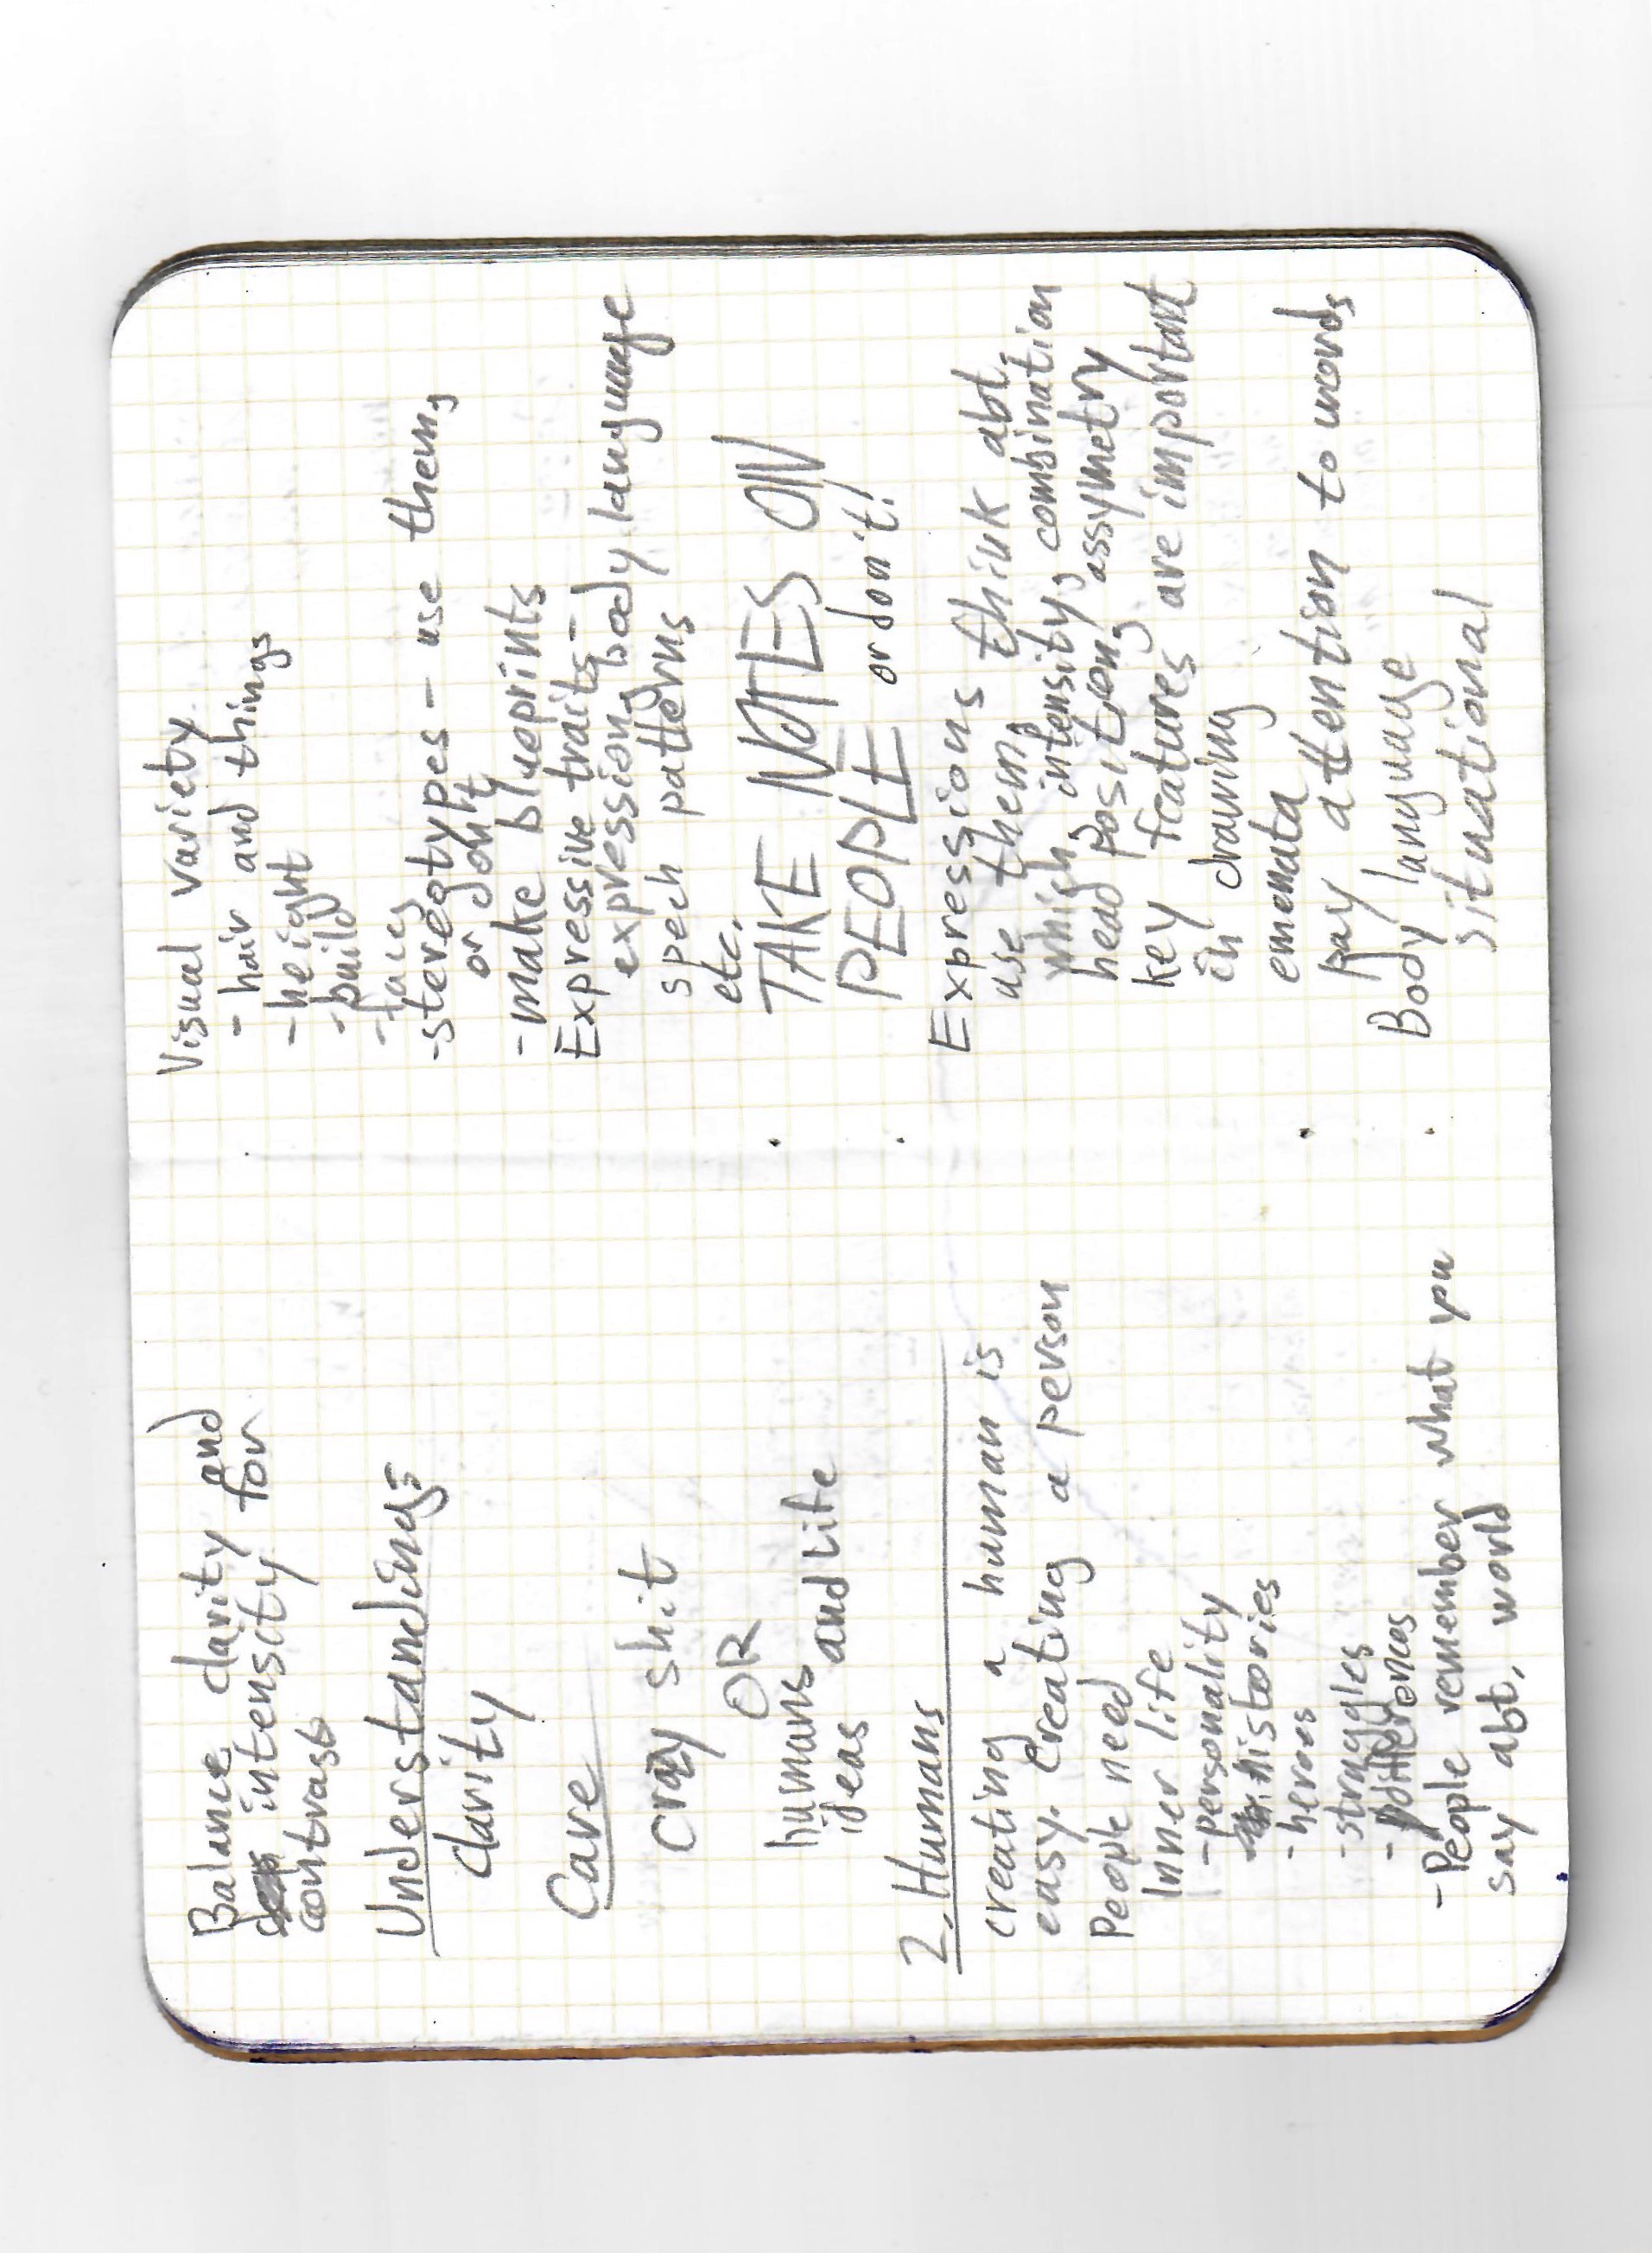 Balance clarity and
intensity for
contrast
Understanding:
clarity
Care
crazy shit
OR
humans
ideas and Life
2. Humans
creating a human is
easy. Creating a person
People need
Inner life
-personality
-histories
-heroes
-struggles
-differences
-People remember what you
say abt. world
Visual variety
- hair and things
-height
-build
-faces
-stereotypes - use them,
or don't
-make blueprints
Expressive traits-
expression, body language
spech patterns
etc.
TAKE NOTES ON
PEOPLE or don't!
Expressions
use them, think abt.
which, intensity, combination
head position, assymetry
key features are important
in drawing
emenata
pay attention to words
Body language
situational